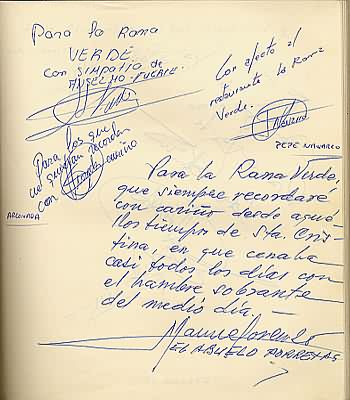 Para la Rana
VERDE
con simpatia de
Con afecto al
restaurante la Rana
Verde.
PEPE NAVARRO
Para los que
me quieran recordar
con cariño
ARLUNADA
Para la Rana Verde,
que siempre recordaré
con cariño desde aque-
llos tiempo de Sta. Cris-
tina, en que cenaba
casi todos los días con
el hambre sobrante
del medio día.-
EL ABUELO PORRETAS